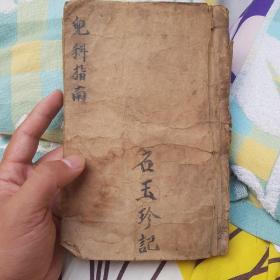 兒科指南
石玉珍記